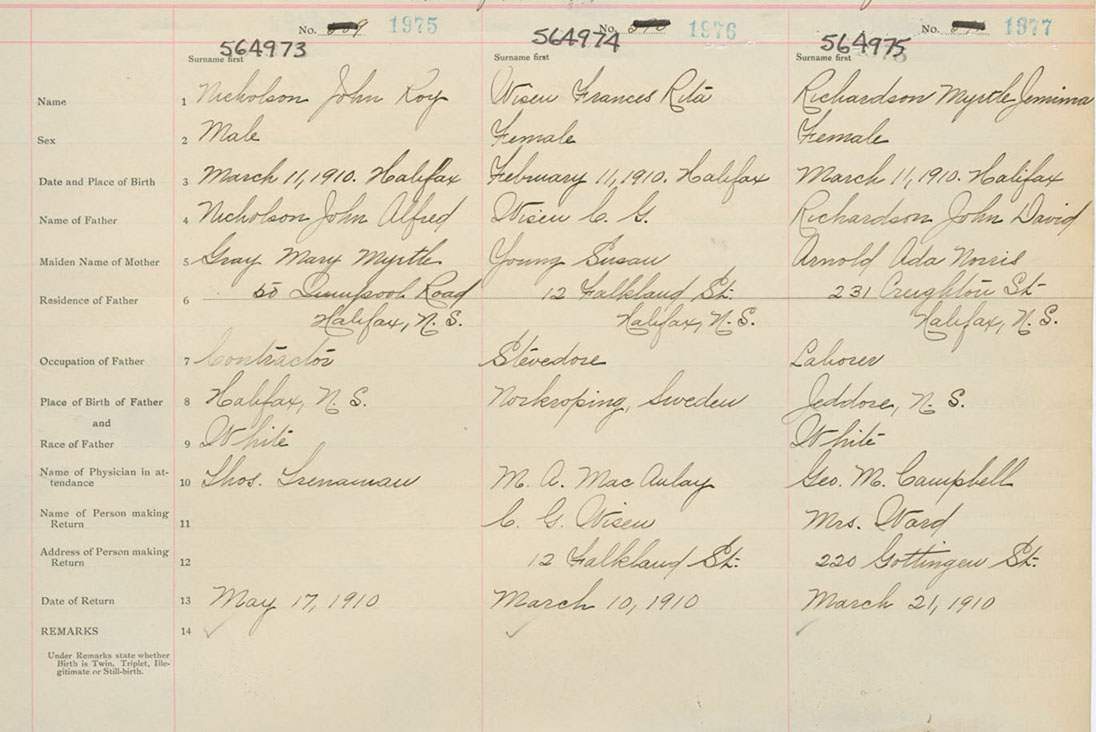 No. 1975 No. 1976 No. 1977
564973 564974 564975
Surname first Surname first Surname first
Name 1 Nicholson John Roy Wisen Frances Rita Richardson Myrtle Jemima
Sex 2 Male Female Female
Date and Place of Birth 3 March 11, 1910. Halifax February 11, 1910. Halifax March 11, 1910. Halifax
Name of Father 4 Nicholson John Alfred Wisen C. G. Richardson John David
Maiden Name of Mother 5 Gray Mary Myrtle Young Susan Arnold Ada Norris
Residence of Father 6 Road 12 Falkland St. 231 Creighton St
Halifax, N. S. Halifax, N. S. Halifax, N. S.
Occupation of Father 7 Contractor Stevedore Laborer
Place of Birth of Father 8 Halifax, N. S. Norkroping, Sweden Jeddore, N. S.
and
Race of Father 9 White White
Name of Physician in at-
tendance 10 Thos. Trenaman M. A. MacAulay Geo. M. Campbell
Name of Person making
Return 11 C. G. Wisen Mrs. Ward
Address of Person making
Return 12 12 Falkland St. 220 Gottingen St.
Date of Return 13 May 17, 1910 March 10, 1910 March 21, 1910
REMARKS 14 ✓ ✓ ✓
Under Remarks state whether
Birth is Twin, Triplet, Ille-
gitimate or Still-birth.